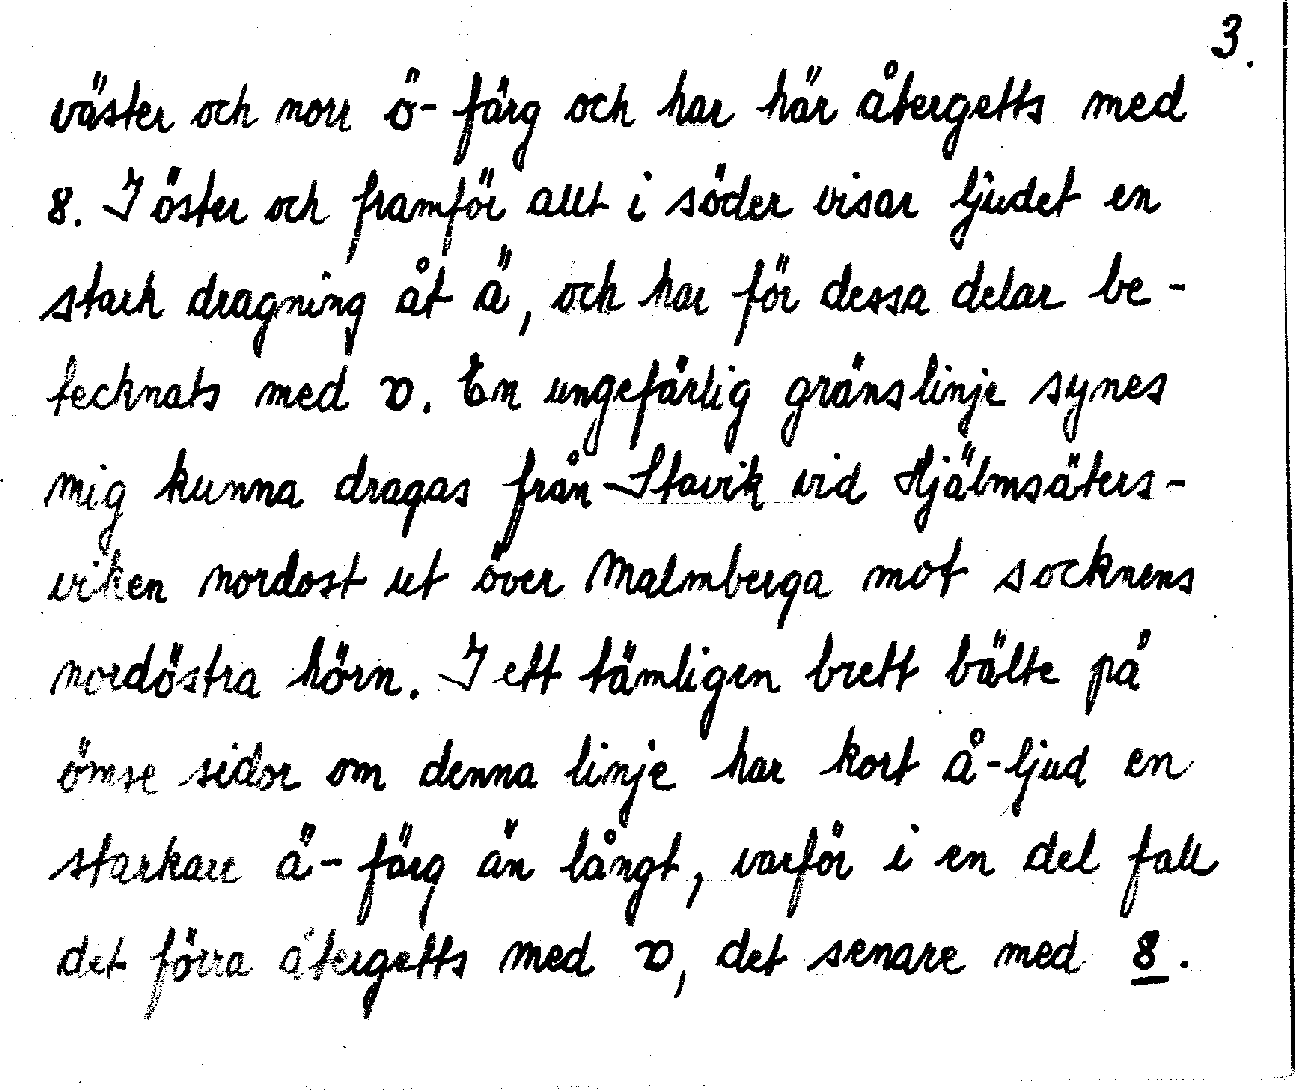 3.
väster och norr ö-färg och har här återgetts med
8. I öster och framför allt i söder visar ljudet en
stark dragning åt ä, och har för dessa delar be-
tecknats med ɒ. En ungefärlig gränslinje synes
mig kunna dragas från Stavik vid Hjälmsäters-
viken nordost ut över Malmberga mot socknens
nordöstra hörn. I ett tämligen brett bälte på
ömse sidor om denna linje har kort å-ljud en
starkare ä-färg än långt, varför i en del fall
det förra återgetts med ɒ, det senare med 8.